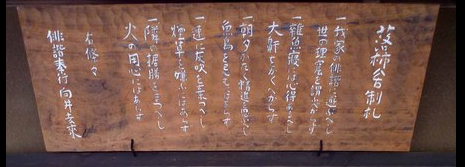 芭蕉公制札
一我家の俳諧に遊ふへし
世の理屈を謂ふへからす
一雑魚寝には心得あるへし
大鼾をかくへからす
一朝夕かたく精進を思ふへし
魚鳥を忌むにはあらす
一速に灰吹を棄つへし
煙草を嫌ふにはあらす
一隣の据膳をまつへし
火の用心にはあらす
右條々
俳諧奉行向井去来